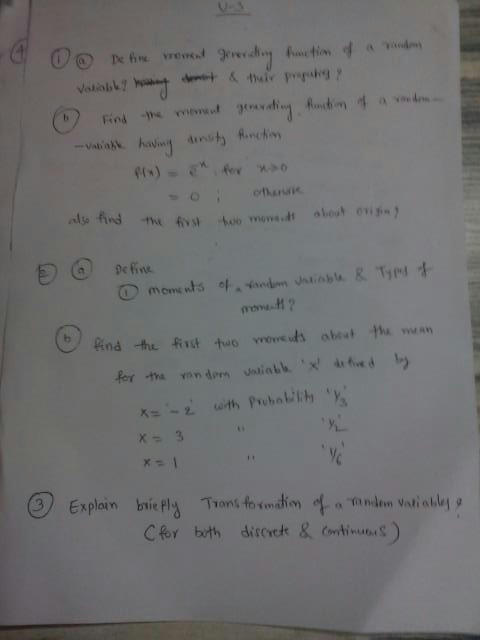 U-3
4
① ⓐ Define moment generating function of a random
variable? & their properties?
ⓑ Find the moment generating function of a random-
-variable having density function
f(x) = e^-x, for x>0
= 0 ; otherwise
also find the first two moments about origin?
② ⓐ Define
① moments of a random variable & Types of
moments?
ⓑ find the first two moments about the mean
for the random variable 'x' defined by
x = '-2' with probability '1/3'
x = 3 " '1/2'
x = 1 " '1/6'
③ Explain briefly Transformation of a random variables?
(for both discrete & continuous)